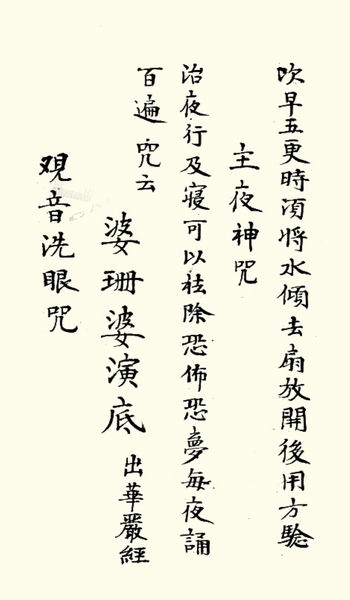 吹早五更時須將水傾去扇放開後用方驗
主夜神咒
治夜行及寢可以祛除恐佈恐夢每夜誦
百遍咒云
婆珊婆演底 出華嚴經
观音洗眼咒